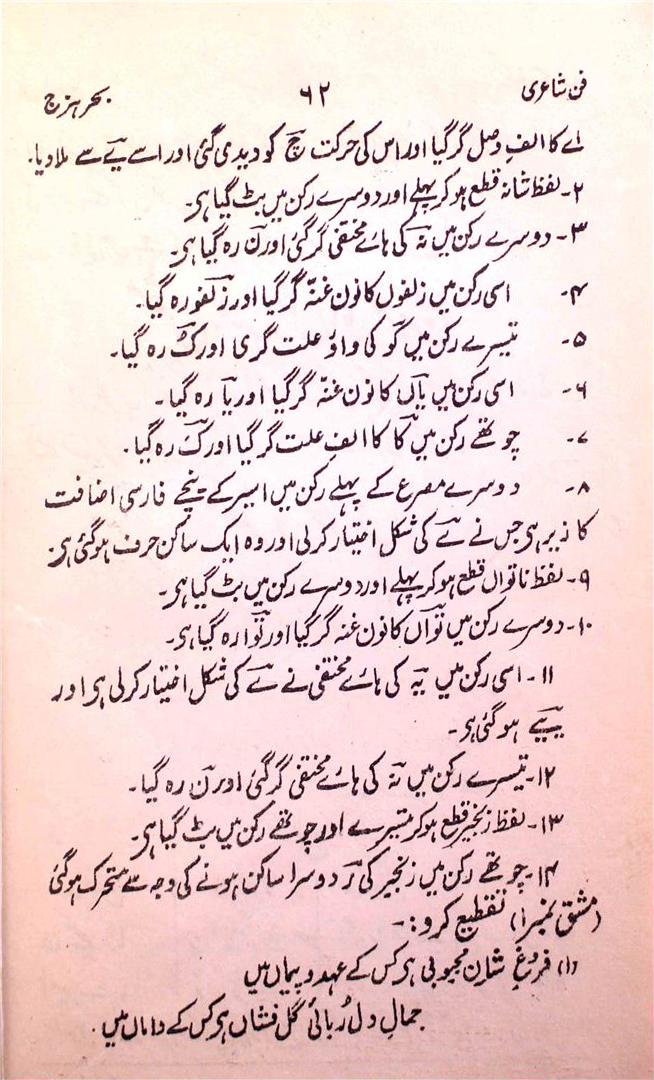 فن شاعری ۶۲ بحر ہزج
اے کا الفِ وصل گر گیا اور اس کی حرکت چ کو دیدی گئی اور اسے یے سے ملا دیا۔
۲۔ لفظ شانہ قطع ہو کر پہلے اور دوسرے رکن میں بٹ گیا ہی۔
۳۔ دوسرے رکن میں نہ کی ہائے مختفی گر گئی اور ن رہ گیا ہی۔
۴۔ اسی رکن میں زلفوں کا نون غنّہ گر گیا اور زلفو رہ گیا۔
۵۔ تیسرے رکن میں کو کی واؤ علت گری اور ک رہ گیا۔
۶۔ اسی رکن میں یاں کا نون غنّہ گر گیا اور یا رہ گیا۔
۷۔ چوتھے رکن میں کا کا الفِ علت گر گیا اور ک رہ گیا۔
۸۔ دوسرے مصرع کے پہلے رکن میں اسیر کے نیچے فارسی اضافت
کا زیر ہی جس نے ے کی شکل اختیار کر لی اور وہ ایک ساکن حرف ہو گئی ہی۔
۹۔ لفظ ناتواں قطع ہو کر پہلے اور دوسرے رکن میں بٹ گیا ہی۔
۱۰۔ دوسرے رکن میں تواں کا نون غنہ گر گیا اور توا رہ گیا ہی۔
۱۱۔ اسی رکن میں یہ کی ہائے مختفی نے ے کی شکل اختیار کر لی ہی اور
ییے ہو گئی ہی۔
۱۲۔ تیسرے رکن میں نہ کی ہائے مختفی گر گئی اور ن رہ گیا۔
۱۳۔ لفظ زنجیر قطع ہو کر تیسرے اور چوتھے رکن میں بٹ گیا ہی۔
۱۴۔ چوتھے رکن میں زنجیر کی ر دوسرا ساکن ہونے کی وجہ سے متحرک ہو گئی
(مشق نمبر۱) تقطیع کرو:۔
(۱) فروغِ شانِ محبوبی ہر کس کے عہد و پیماں میں
جمالِ دل رُبائی گل فشاں ہر کس کے داماں میں۔